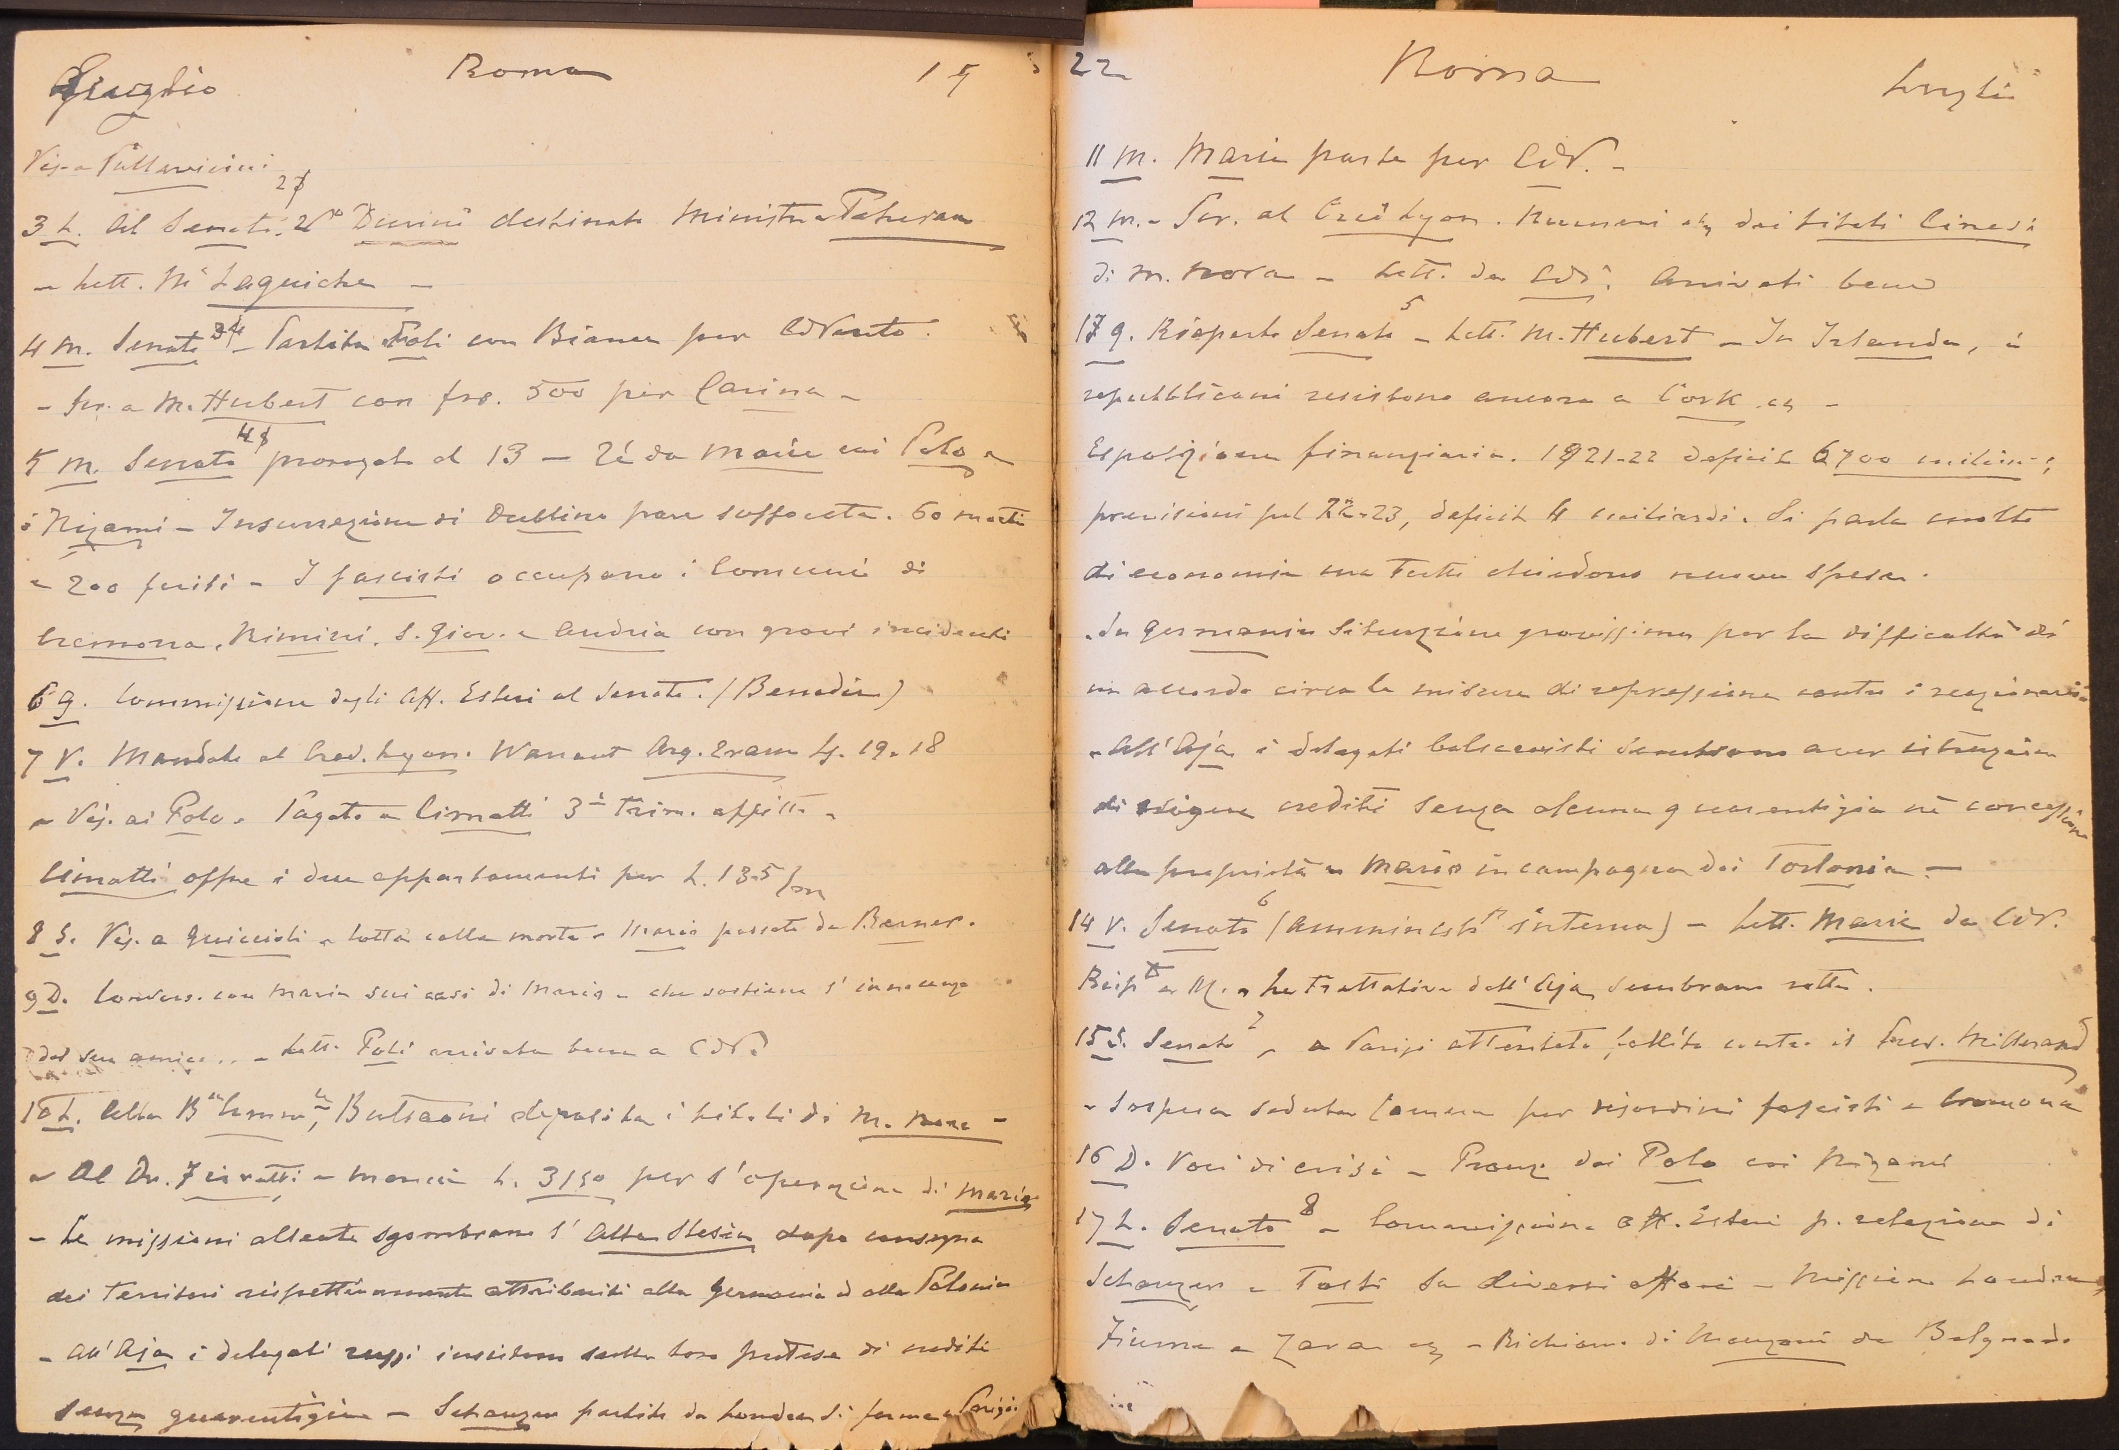 Luglio Roma 19
Vis. a Pallavicini
27
3 L. Al Senato. Durini destinato Ministro a Teheran
- Lett. Mse Laguiche -
4 m. Senato - Partita Poli con Bianca per CdVento.
- Scr. a M. Hubert con frs. 500 per Carina -
5 m. Senato prorogato al 13 - Té da Marie coi Polo e
i Nizami - Insurrezione di Dublino pare soffocata. 60 morti
e 200 feriti - I fascisti occupano i Comuni di
Cremona, Rimini, S. Giov. e Andria con gravi incidenti
6 g. Commissione degli Aff. Esteri al Senato. (Benadir)
7 V. Mandato al Cred. Lyon. Warrant Arg. 19.18
- Vis. ai Polo - Pagato a Cimatti 3° Trim. affitto -
Cimatti offre i due appartamenti per L. 135/m
8 S. Vis. a Guiccioli in lotta colla morte - Mario passato da
9 D. Convers. con Maria sui casi di Mario - che sostiene l'innocenza
del suo amico .. - Lett. Poli arrivata bene a CdV.
10 L. Alla Bca Commle, deposito i titoli di M. Nora -
- Al Dr. mancia L. 3150 per l'operazione di Mario
- Le missioni alleate sgombrano l'Alta Slesia dopo consegna
dei Territori rispettivamente attribuiti alla Germania ed alla Polonia
- All'Aja i delegati russi insistono sulla loro pretesa di crediti
senza guarentigia - Schanzer partito da Londra si ferma a Parigi
22 Roma Luglio
11 m. Maria parte per CdV. -
12 m. - Scr. al Créd Lyon. Numeri etc dei titoli Cinesi
di M. Nora - Lett. da CdV. Arrivati bene
5
13 g. Riaperto Senato - Lett. M. Hubert - In Irlanda, i
repubblicani resistono ancora a Cork etc -
Esposizione finanziaria. 1921-22 deficit 6700 milioni;
previsioni pel 22-23, deficit 4 miliardi. Si parla molto
di economia ma Tutti chiedono nuove spese.
- In Germania Situazione gravissima per la difficoltà di
un accordo circa le misure di repressione contro i reazionari
- All'Aja i delegati bolscevisti sembrano aver istruzioni
di esigere crediti senza alcuna guarentigia né concessione
alla proprietà - Mario in campagna dai Torlonia -
6
14 V. Senato (Amministre interna) - Lett. Marie da CdV.
Rispto a M. - Le Trattative dell'Aja sembrano rotte.
15 S. Senato 7 - a Parigi attentato fallito contro il Pres. Millerand
- Sospesa seduta Camera per disordini fascisti a Cremona
16 D. Voci di crisi - Pranz. dai Polo coi Nizami
17 L. Senato 8 - Commissione aff. Esteri p. relazione di
Schanzer e Tosti su diversi affari - Missione Londra,
Fiume e Zara etc - Richiamo di Manzoni da Belgrado